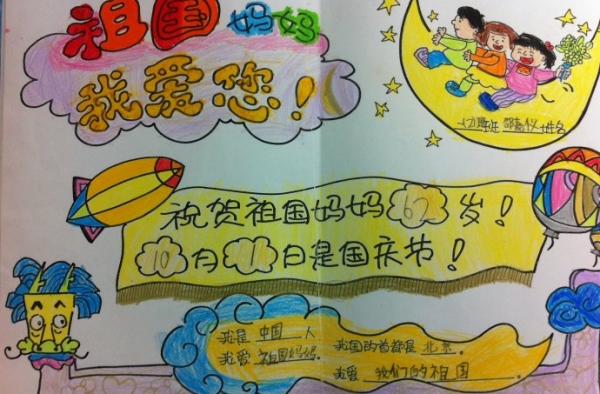 祖国妈妈
我爱您!
班 姓名
祝贺祖国妈妈62岁!
10月 日是国庆节!
我是 中国 人
我爱 祖国妈妈.
我国的首都是 北京.
我爱 我们的祖国